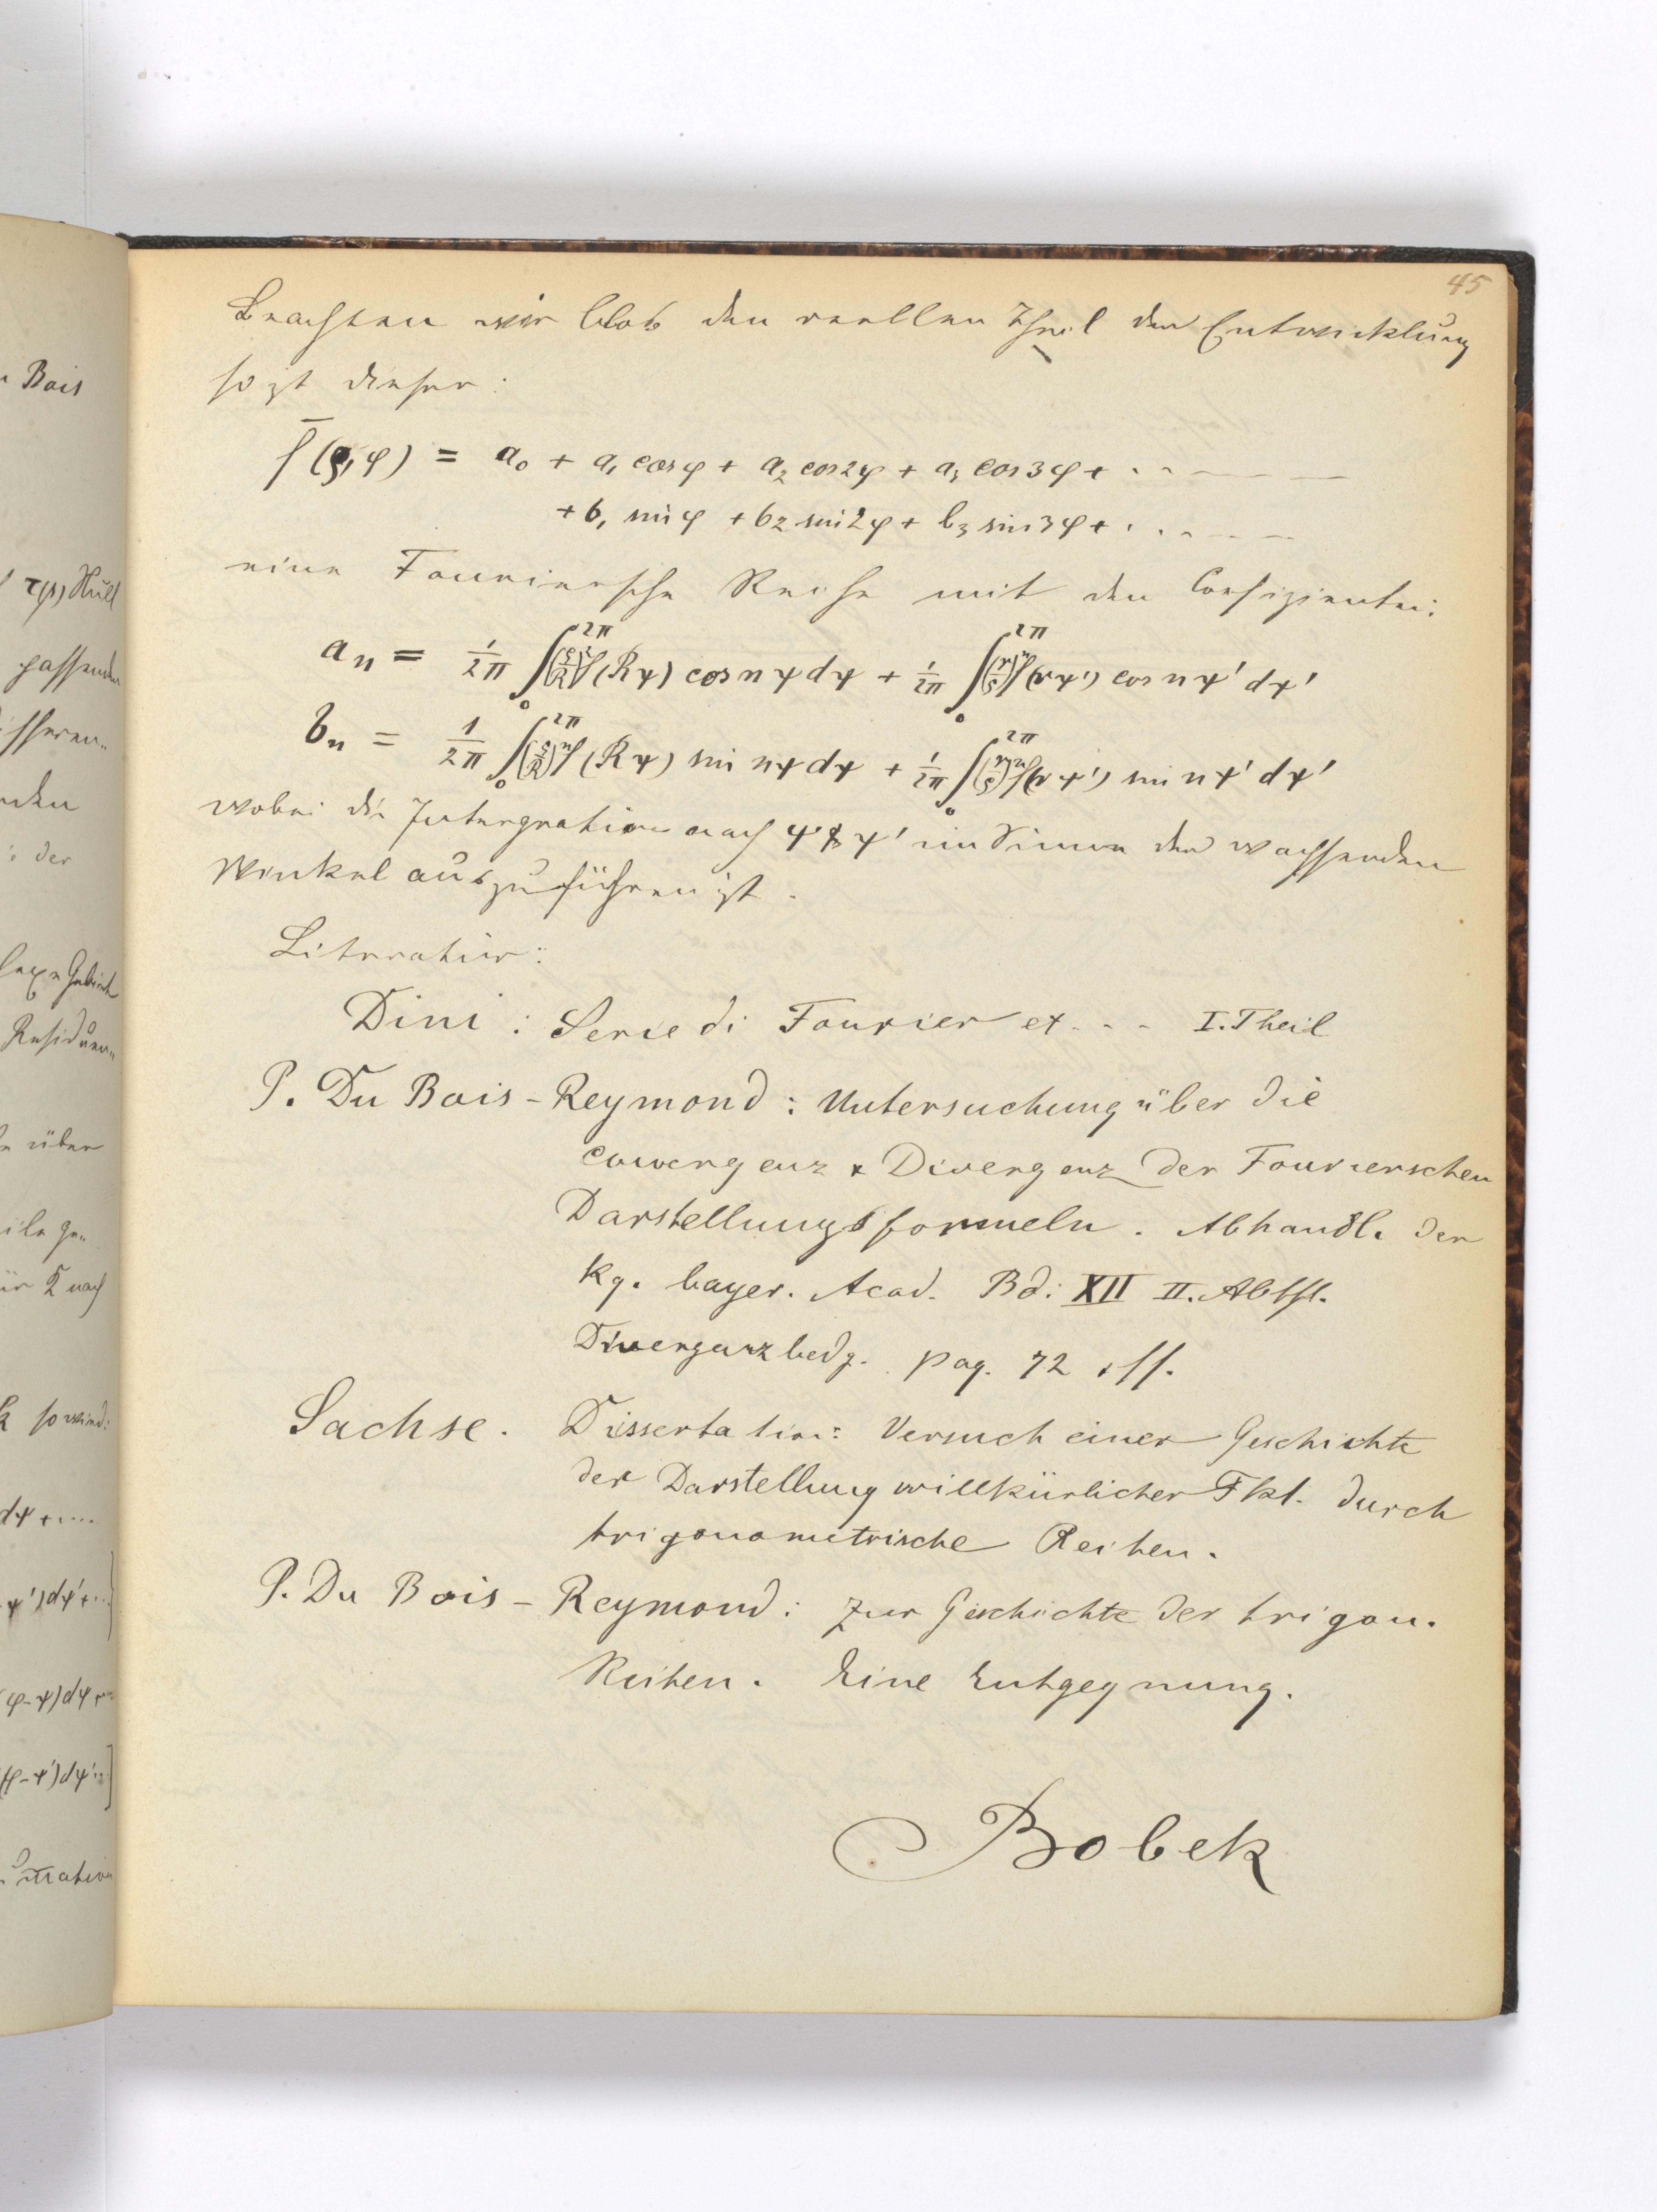 45
Beachten wir blos den reellen Theil der Entwicklung
so ist dieser:
f̄(ρ,φ) = a₀ + a₁ cos φ + a₂ cos 2φ + a₃ cos 3φ + . . — — —
+ b₁ sin φ + b₂ sin 2φ + b₃ sin 3φ + . . . — — —
eine Fouriersche Reihe mit den Coefizienten:
aₙ = 1/2π ∫₀^2π (ρ/R)ⁿ f(Rψ) cos nψ dψ + 1/2π ∫₀^2π (r/ρ)ⁿ f(rψ') cos nψ' dψ'
bₙ = 1/2π ∫₀^2π (ρ/R)ⁿ f(Rψ) sin nψ dψ + 1/2π ∫₀^2π (r/ρ)ⁿ f(rψ') sin nψ' dψ'
wobei die Intergration nach ψ & ψ' im Sinne der wachsenden
Winkel auszuführen ist.
Literatur:
Dini : Serie di Fourier et . - - I. Theil
P. Du Bois-Reymond : Untersuchung über die
Convergenz & Divergenz der Fourierschen
Darstellungsformeln. Abhandl. der
kg. bayer. Acad. Bd: XII II. Abth.
Divergenzbedg. pag. 72 . ff.
Sachse. Dissertation: Versuch einer Geschichte
der Darstellung willkürlicher Fkt. durch
trigonometrische Reihen.
P. Du Bois-Reymond: Zur Geschichte der trigon.
Reihen. Eine Entgegnung.
Bobek
Bois
passenden
über
so wird:
dψ + ....
ψ')dψ' + ..
(φ-ψ)dψ
(φ-ψ')dψ'